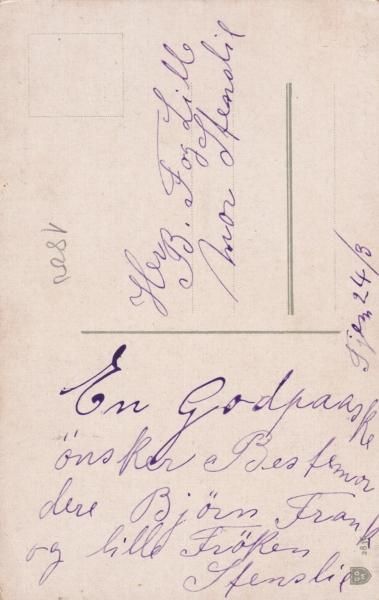 Herr
B. F og Lille
mor Stenslie
Fjen 24/3
En Godpaaske
önsker Bestemor
dere Björn Frank
og lille Fröken
Stenslie